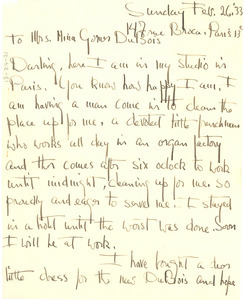 Sunday Feb. 26, '33
Rue Broca, Paris 13
To Mrs. Mira Gomer DuBois
Darling, here I am in my studio in
Paris. You know how happy I am. I
am having a man come in to clean the
place up for me, a devoted little frenchman
who works all day in an organ factory
and this comes after six oclock to work
until midnight, cleaning up for me. So
proudly and eager to serve me. I stayed
in a hotel until the worst was done. Soon
I will be at work.
I have bought a dear
little dress for the new DuBois and hope